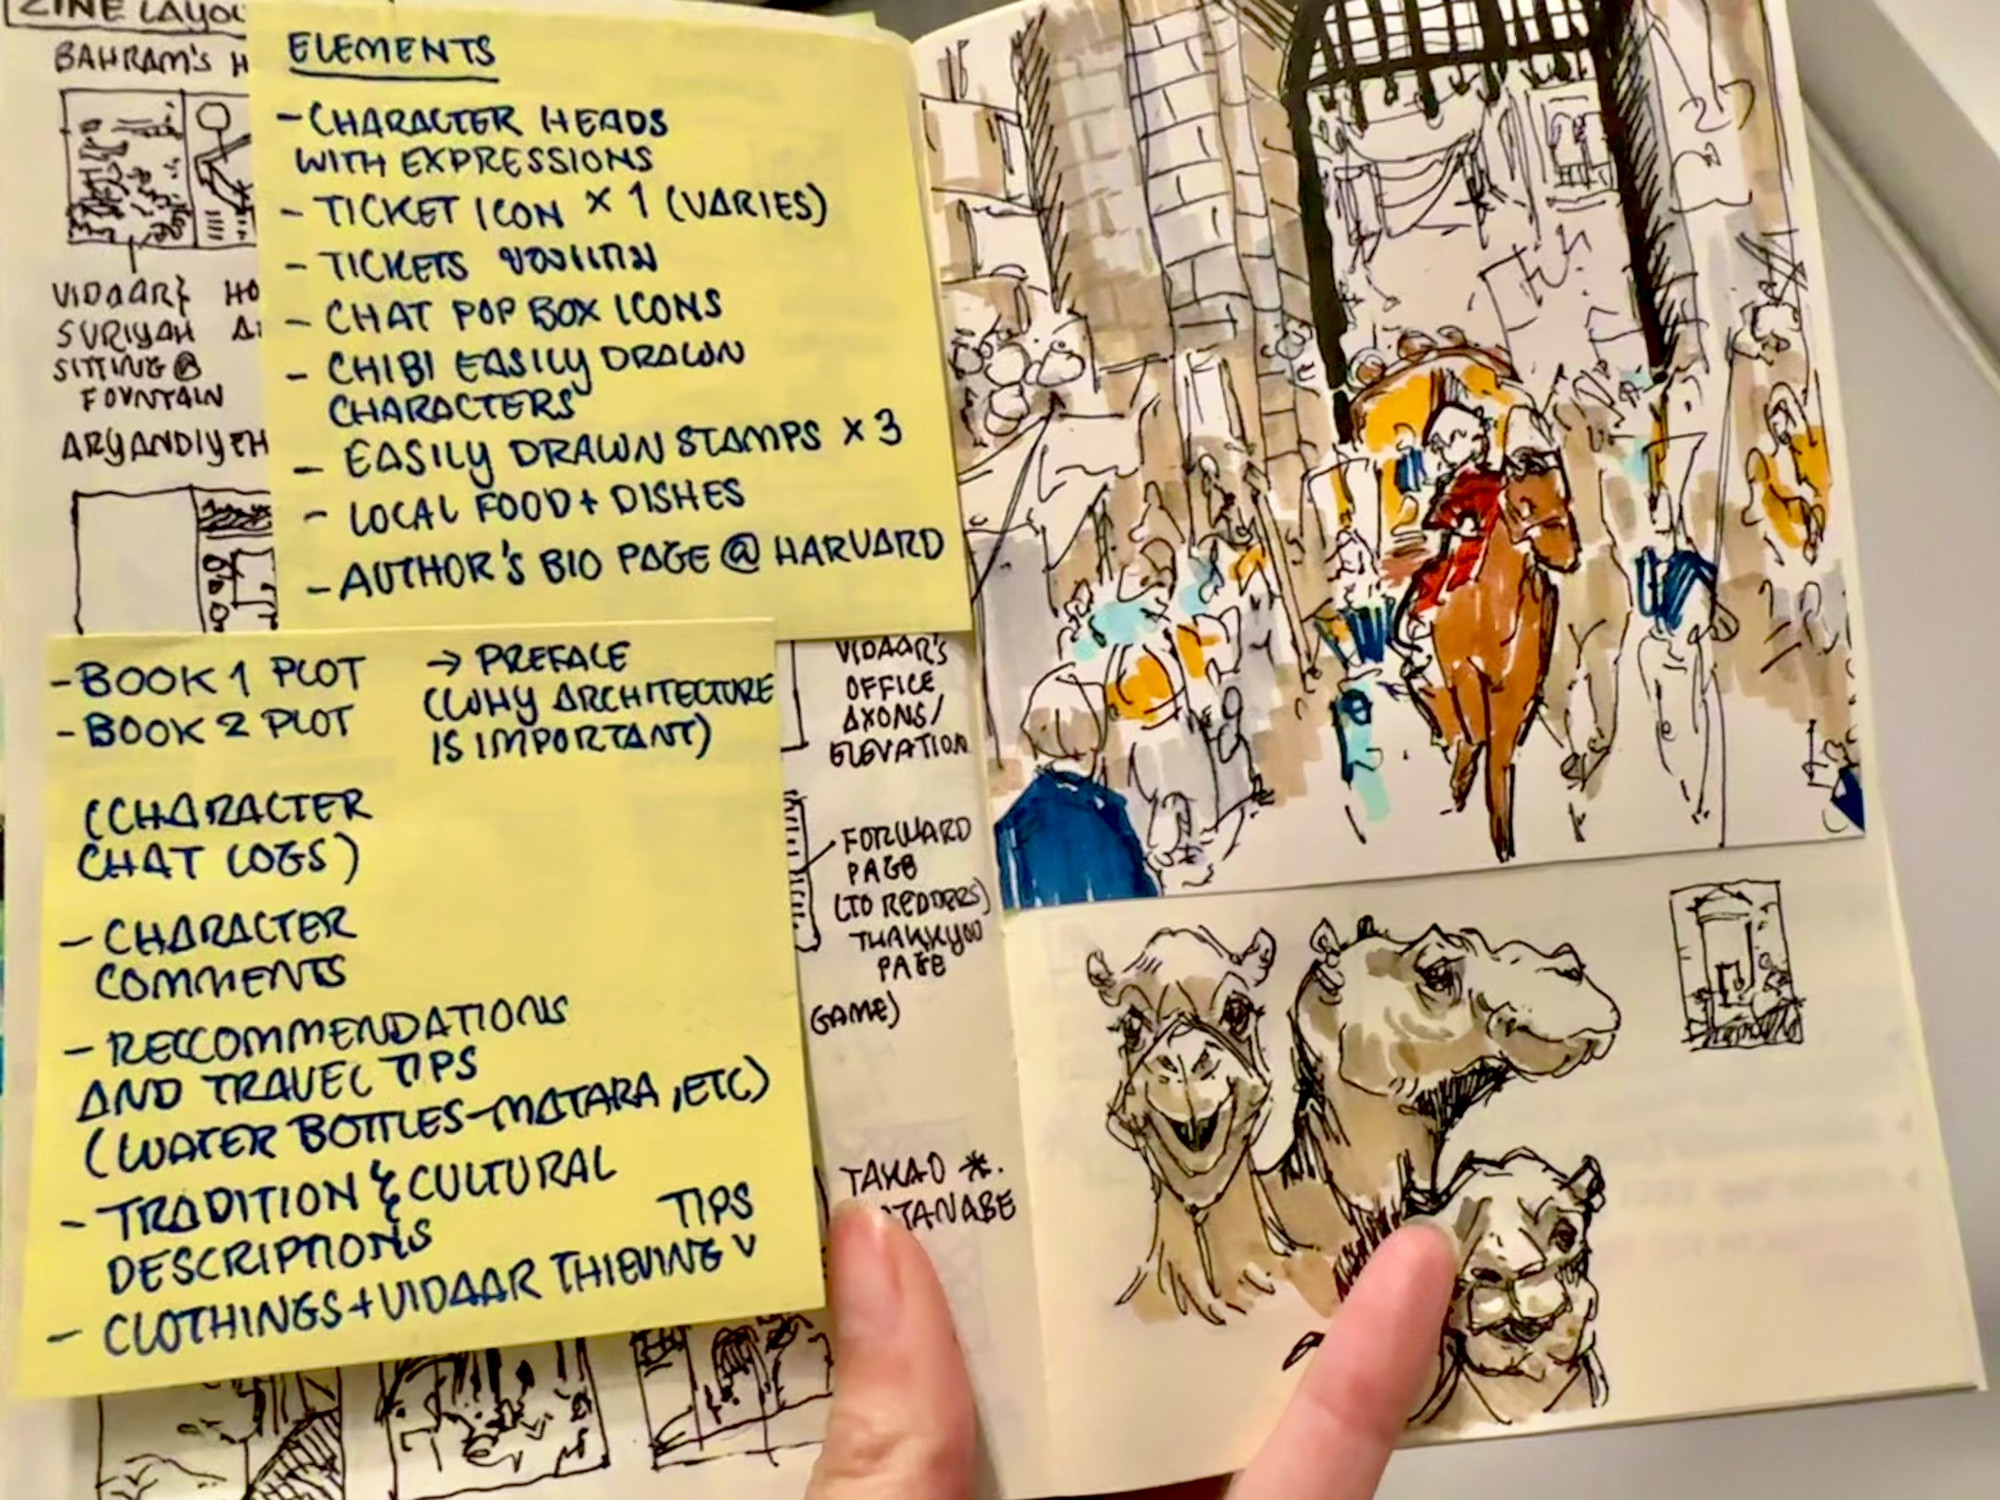 ZINE LAYOU
BAHRAM'S H
VIDAAR &
SURIYAH
SITTING @
FOUNTAIN
ELEMENTS
- CHARACTER HEADS
WITH EXPRESSIONS
- TICKET ICON × 1 (VARIES)
- TICKETS ของแถม
- CHAT POP BOX ICONS
- CHIBI EASILY DRAWN
CHARACTERS
- EASILY DRAWN STAMPS × 3
- LOCAL FOOD + DISHES
- AUTHOR'S BIO PAGE @ HARVARD
- BOOK 1 PLOT
- BOOK 2 PLOT
→ PREFACE
(WHY ARCHITECTURE
IS IMPORTANT)
(CHARACTER
CHAT LOGS)
- CHARACTER
COMMENTS
- RECCOMMENDATIONS
AND TRAVEL TIPS
(WATER BOTTLES-MATARA, ETC)
- TRADITION & CULTURAL
DESCRIPTIONS
TIPS
- CLOTHINGS + VIDAAR THIEVING ˅
VIDAAR'S
OFFICE
AXONS/
ELEVATION
FORWARD
PAGE
(TO READERS)
THANKYOU
PAGE
GAME)
TAKAO *.